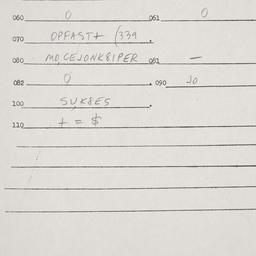 060 0 061 0
070 OPFAST+ (339.
080 MO,CEJONK&IPER 081 —
082 0 . 090 10
100 SUK&ES.
110 + = $